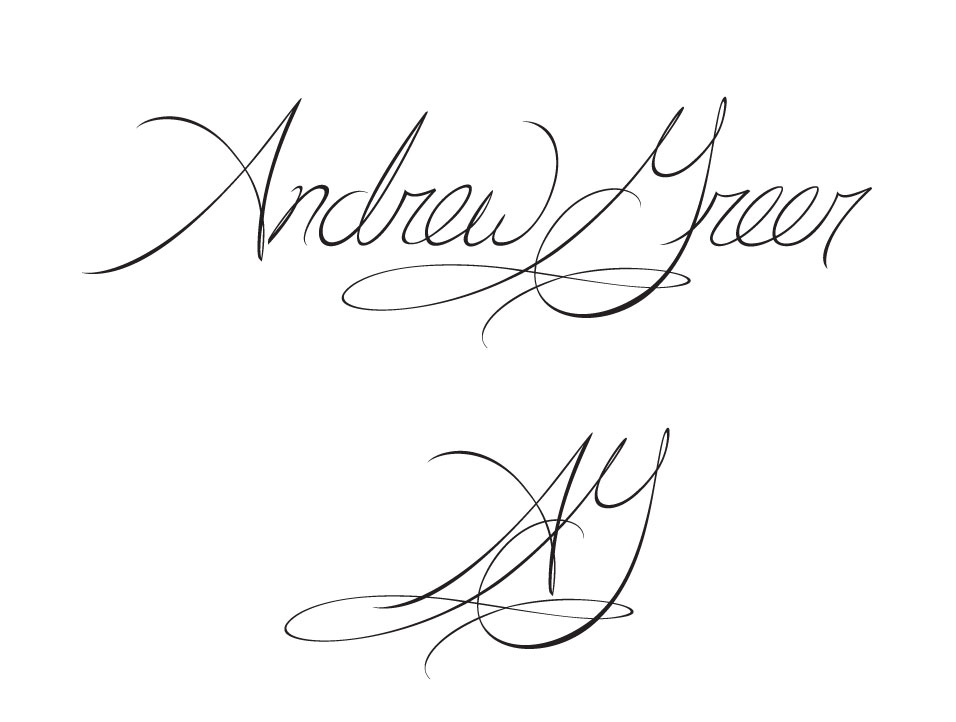 Andrew Greer
AG